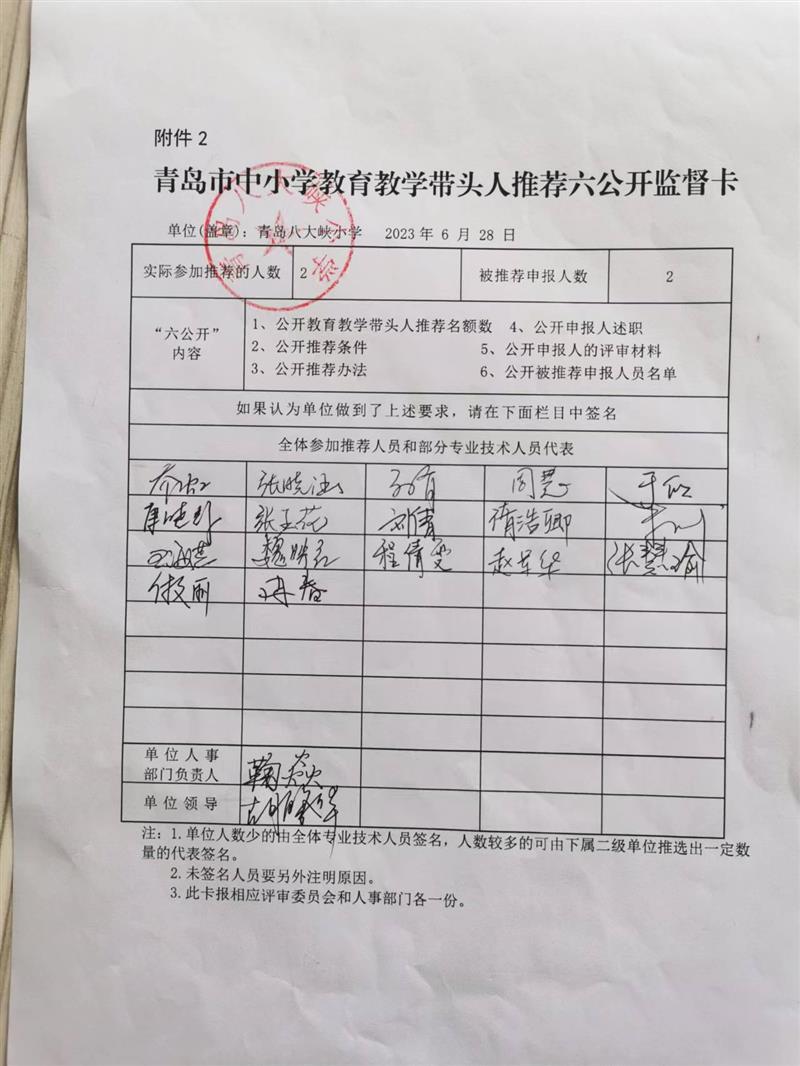 附件 2
青岛市中小学教育教学带头人推荐六公开监督卡
单位(盖章)：青岛八大峡小学 2023 年 6 月 28 日
实际参加推荐的人数 2 被推荐申报人数 2
“六公开”内容
1、公开教育教学带头人推荐名额数 4、公开申报人述职
2、公开推荐条件 5、公开申报人的评审材料
3、公开推荐办法 6、公开被推荐申报人员名单
如果认为单位做到了上述要求，请在下面栏目中签名
全体参加推荐人员和部分专业技术人员代表
张晓涵 周慧
张玉花 刘倩 隋浩卿
程倩雯 张慧瑜
单位人事
部门负责人
单位领导
注：1.单位人数少的由全体专业技术人员签名，人数较多的可由下属二级单位推选出一定数
量的代表签名。
2.未签名人员要另外注明原因。
3.此卡报相应评审委员会和人事部门各一份。